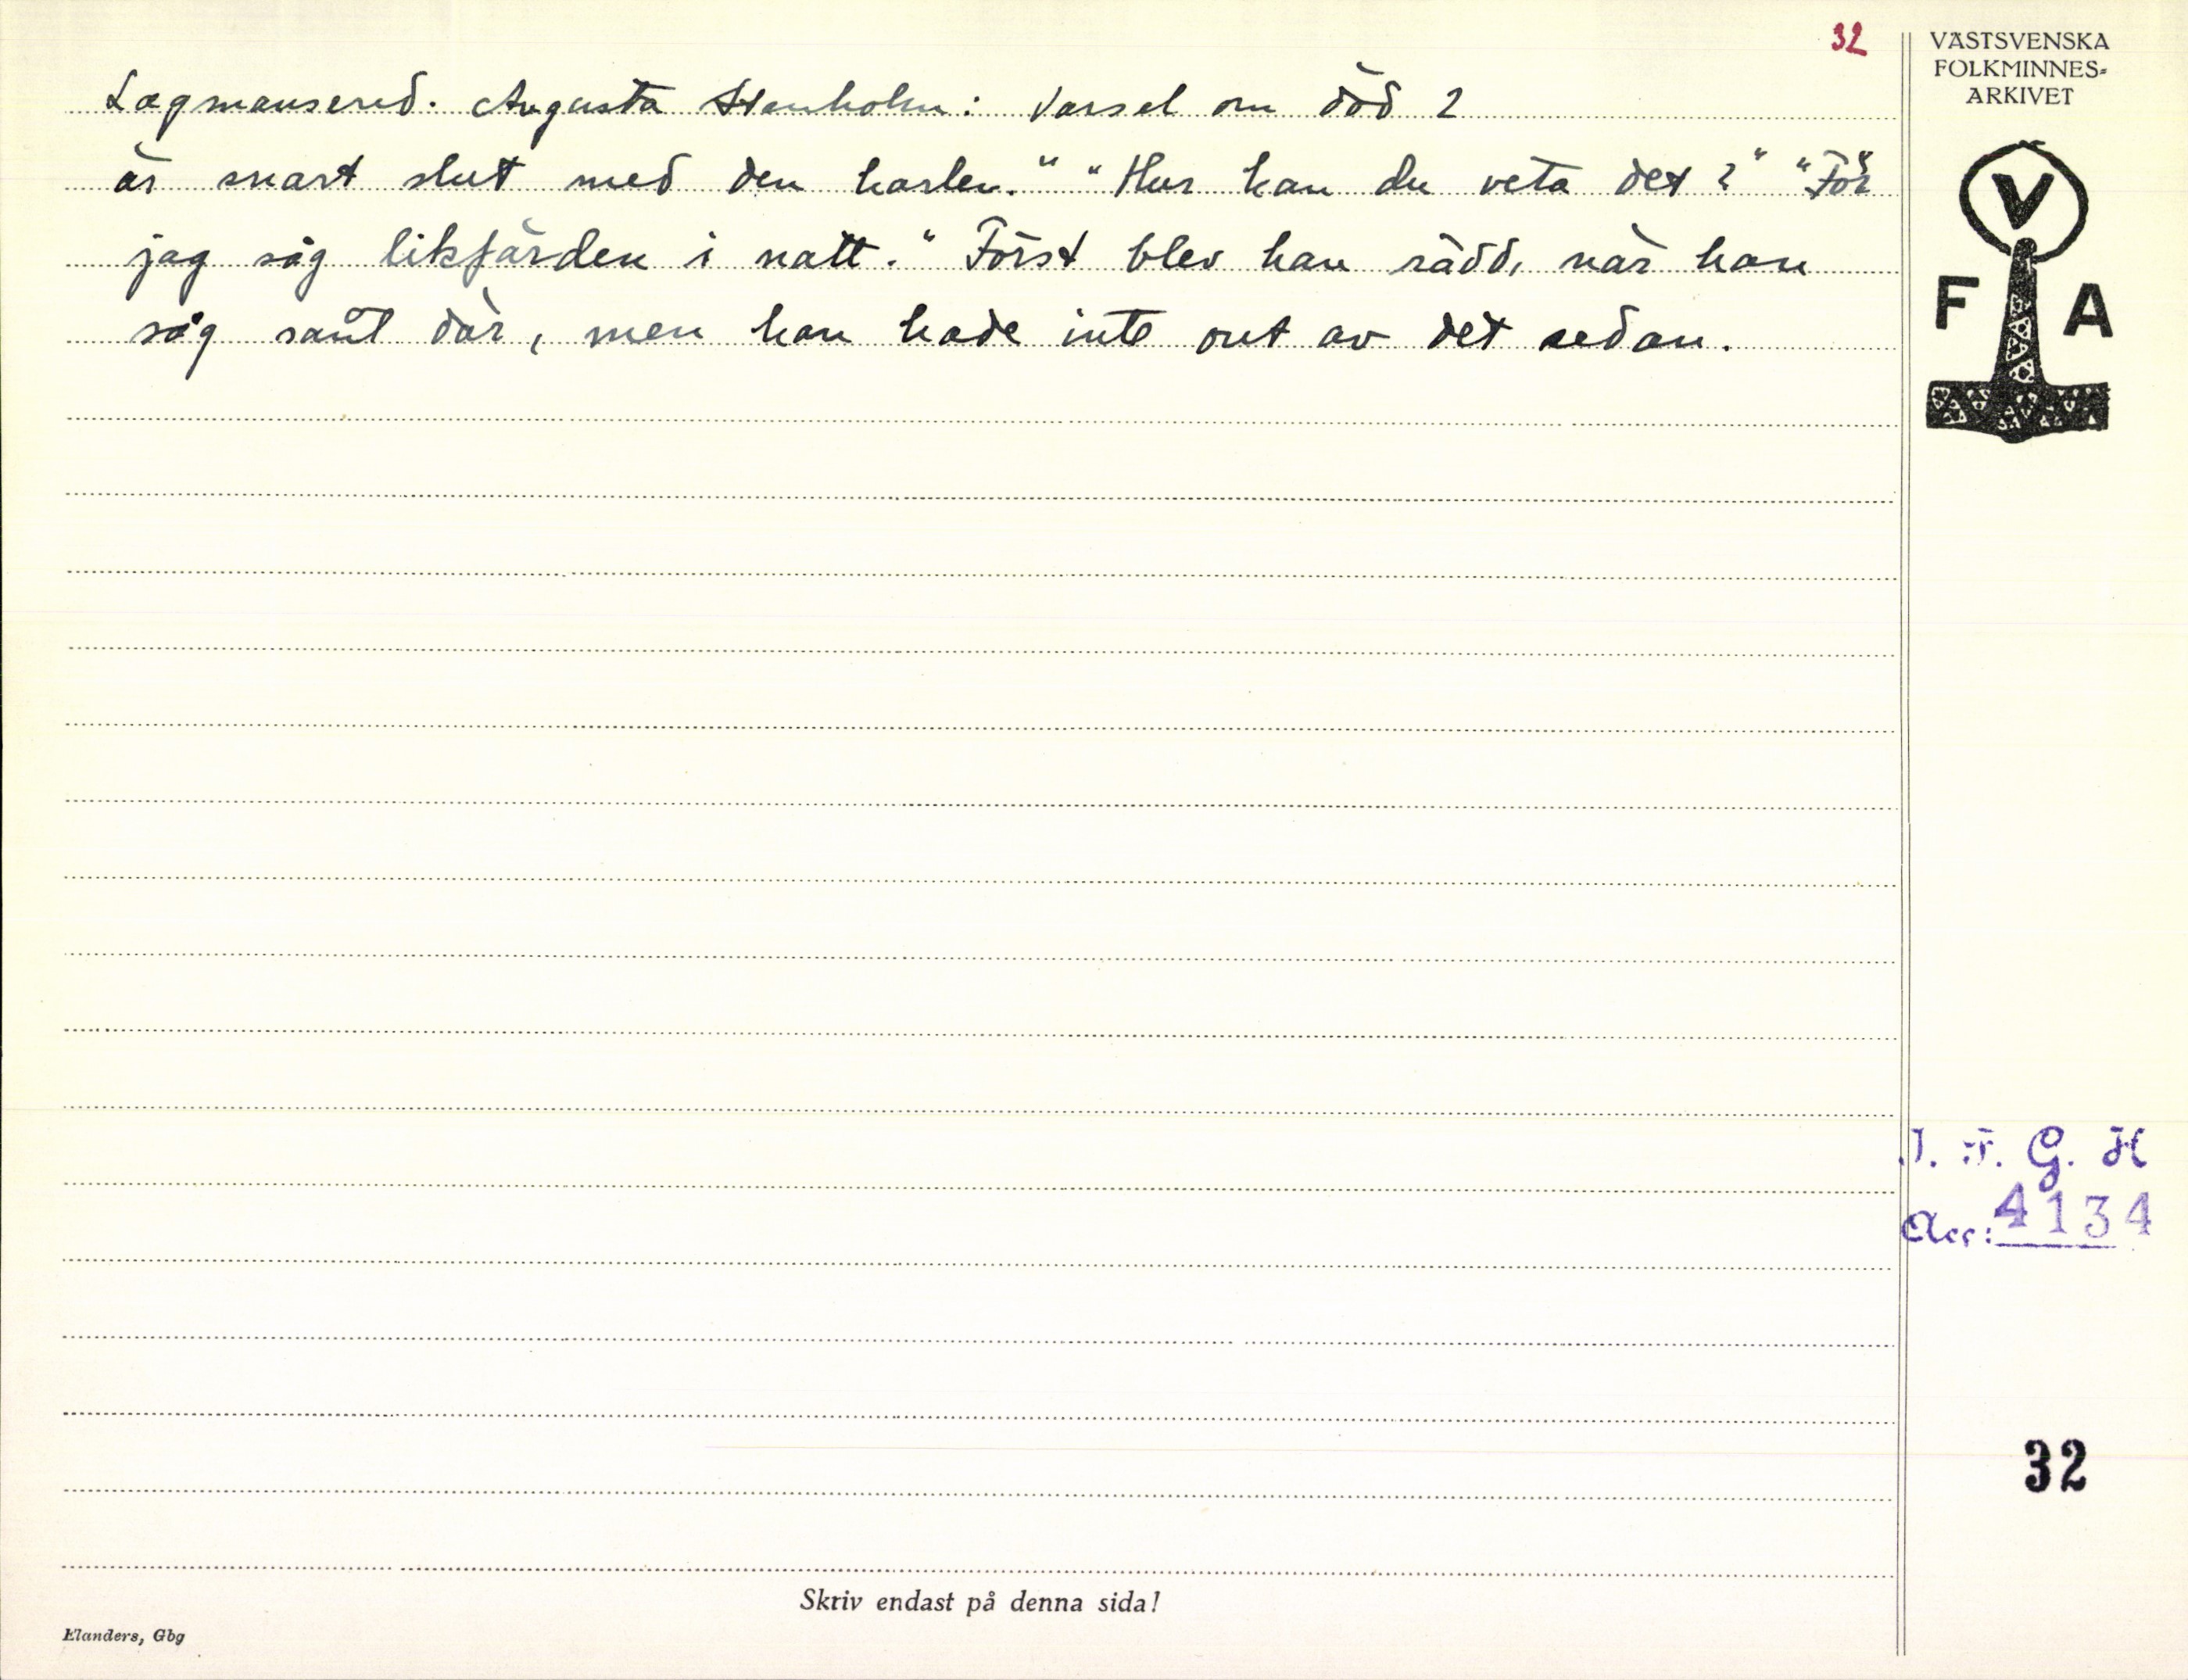 32
VÄSTSVENSKA
FOLKMINNES-
ARKIVET
Lagmansered. Augusta Stenholm: Varsel om död 2
är snart slut med den karlen." "Hur kan du veta det?" "För
jag såg likfärden i natt." Först blev han rädd, när han
såg sånt där, men han hade inte ont av det sedan.
V
F A
I. F. G. H
Acc: 4134
32
Skriv endast på denna sida!
Elanders, Gbg